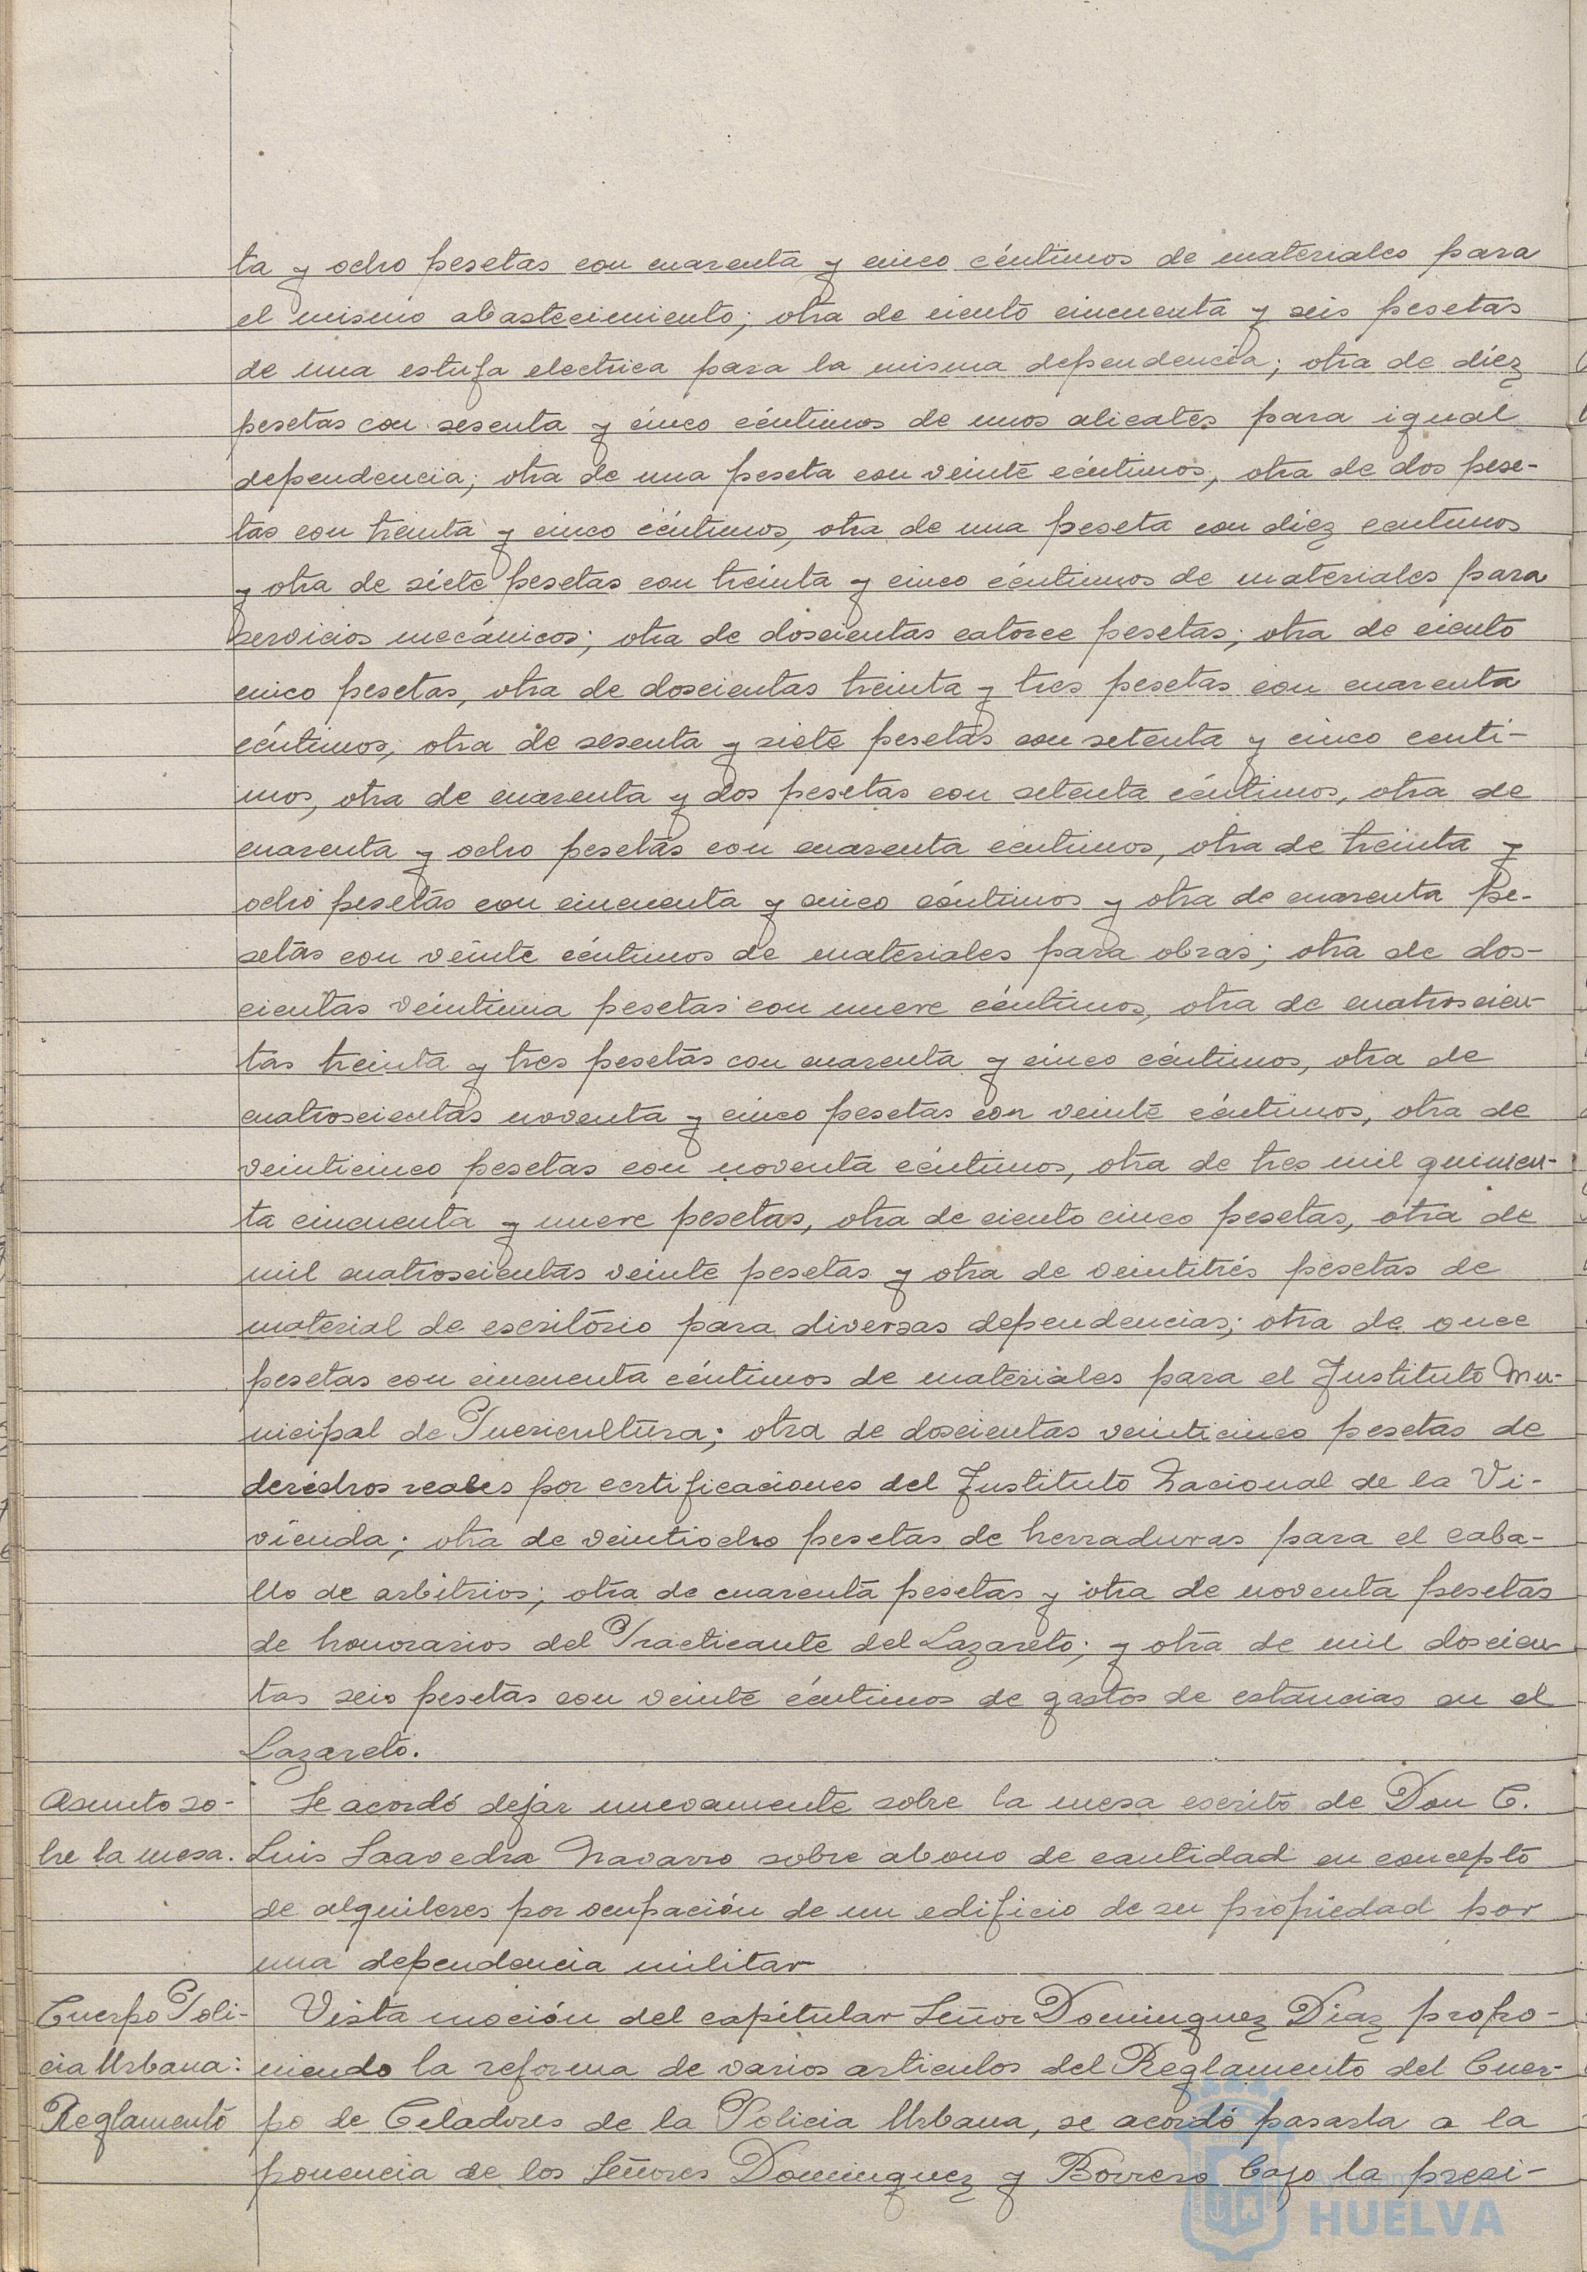 ta y ocho pesetas con cuarenta y cinco céntimos de materiales para
el mismo abastecimiento; otra de ciento cincuenta y seis pesetas
de una estufa electrica para la misma dependencia; otra de diez
pesetas con sesenta y cinco céntimos de unos alicates para igual
dependencia; otra de una peseta con veinte céntimos, otra de dos pese-
tas con treinta y cinco céntimos, otra de una peseta con diez centimos
y otra de siete pesetas con treinta y cinco céntimos de materiales para
servicios mecánicos; otra de doscientas catorce pesetas; otra de ciento
cinco pesetas, otra de doscientas treinta y tres pesetas con cuarenta
céntimos, otra de sesenta y siete pesetas con setenta y cinco centi-
mos, otra de cuarenta y dos pesetas con setenta céntimos, otra de
cuarenta y ocho pesetas con cuarenta centimos, otra de treinta y
ocho pesetas con cincuenta y cinco céntimos y otra de cuarenta pe-
setas con veinte céntimos de materiales para obras; otra de dos-
cientas veintiuna pesetas con nueve céntimos, otra de cuatroscien-
tas treinta y tres pesetas con cuarenta y cinco céntimos, otra de
cuatroscientas noventa y cinco pesetas con veinte céntimos, otra de
veinticinco pesetas con noventa céntimos, otra de tres mil quinien-
ta cincuenta y nueve pesetas, otra de ciento cinco pesetas, otra de
mil cuatroscientas veinte pesetas y otra de veintitrés pesetas de
material de escritorio para diversas dependencias; otra de once
pesetas con cincuenta céntimos de materiales para el Instituto Mu-
nicipal de Puericultura; otra de doscientas veinticinco pesetas de
derechos reales por certificaciones del Instituto Nacional de la Vi-
vienda; otra de veintiocho pesetas de herraduras para el caba-
llo de arbitrios; otra de cuarenta pesetas y otra de noventa pesetas
de honorarios del Practicante del Lazareto; y otra de mil doscien-
tas seis pesetas con veinte céntimos de gastos de estancias en el
Lazareto.
Asunto so-
bre la mesa.
Se acordó dejar nuevamente sobre la mesa escrito de Don C.
Luis Saavedra Navarro sobre abono de cantidad en concepto
de alquileres por ocupación de un edificio de su propiedad por
una dependencia militar
Cuerpo Poli-
cia Urbana:
Reglamento
Vista moción del capitular Señor Dominguez Diaz propo-
niendo la reforma de varios articulos del Reglamento del Cuer-
po de Celadores de la Policia Urbana, se acordó pasarla a la
ponencia de los Señores Dominguez y Borrero bajo la presi-
HUELVA